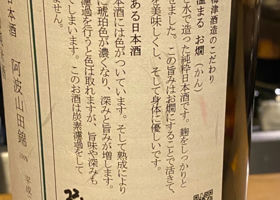 梅津酒造のこだわり
温まる お燗(かん)
と水で造った純粋日本酒です。麹をしっかりと
きました。この旨みはお燗にすることで活きて、
を美味しくし、そして身体に優しいです。
ある日本酒
本酒には色がついています。そして熟成により
に琥珀色が濃くなり、深みと旨みが増します。
濾過を行うと色は取れますが、旨味や深みも
てしまいます。このお酒は炭素濾過をして
せん。
日本酒
阿波山田錦